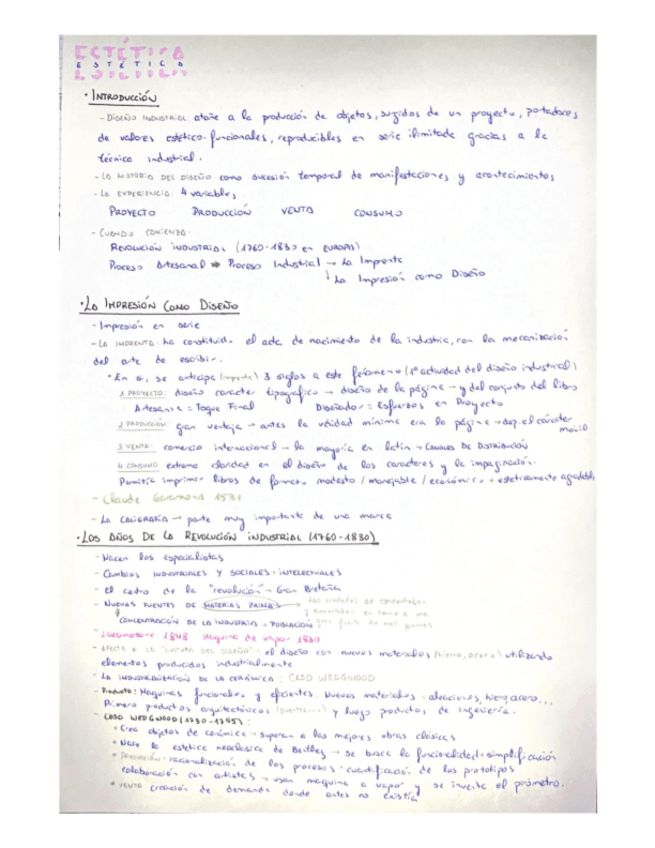 ESTÉTICA
· INTRODUCCIÓN
- DISEÑO INDUSTRIAL atañe a la producción de objetos, surgidos de un proyecto, portadores
de valores estético-funcionales, reproducibles en serie ilimitada gracias a la
técnica industrial.
- LA HISTORIA DEL DISEÑO como sucesión temporal de manifestaciones y acontecimientos
- LA EXPERIENCIA: 4 variables
PROYECTO PRODUCCIÓN VENTA CONSUMO
- CUANDO COMIENZA:
REVOLUCIÓN INDUSTRIAL (1760-1830 en EUROPA)
Proceso Artesanal → Proceso Industrial → La Imprenta
↳ La Impresión como Diseño
· LA IMPRESIÓN COMO DISEÑO
- Impresión en serie
- LA IMPRENTA: ha constituido el acta de nacimiento de la industria, con la mecanización
del arte de escribir.
· En sí, se anticipa (imprenta) 3 siglos a este fenómeno (1ª actividad del diseño industrial)
1. PROYECTO: diseño carácter tipográfico → diseño de la página → y del conjunto del libro
Artesanía = Toque Final Diseñador = Esfuerzos en Proyecto
2. PRODUCCIÓN gran ventaja → antes la unidad mínima era la página → dsp. el carácter
móvil
3. VENTA: comercio internacional → la mayoría en latín → CANALES DE DISTRIBUCIÓN
4. CONSUMO extrema claridad en el diseño de los caracteres y la impaginación.
Permitía imprimir libros de formato modesto / manejable / económico + estéticamente agradable
- Claude Garamond 1531
- LA CALIGRAFÍA → parte muy importante de una marca
· LOS AÑOS DE LA REVOLUCIÓN INDUSTRIAL (1760-1830)
- Nacen los especialistas
- Cambios INDUSTRIALES Y SOCIALES-INTELECTUALES
- El centro de la "revolución" → Gran Bretaña
- NUEVAS FUENTES DE MATERIAS PRIMAS →
CONCENTRACIÓN DE LA INDUSTRIA + POBLACIÓN
- Locomotora 1848 Máquina de vapor 1830
- AFECTA A LA "CULTURA DEL DISEÑO": el diseño con nuevos materiales (hierro, acero) utilizando
elementos producidos industrialmente
- LA INDUSTRIALIZACIÓN DE LA CERÁMICA: CASO WEDGWOOD
- Producto: Máquinas funcionales y eficientes. Nuevos materiales: aleaciones, hierro, acero...
Primero productos arquitectónicos (puentes...) y luego productos de ingeniería.
- CASO WEDGWOOD (1730-1795):
· Crea objetos de cerámica → superan a las mejores obras clásicas
· Nace la estética neoclásica de → se busca la funcionalidad + simplificación
· PRODUCCIÓN: racionalización de los procesos + cuantificación de los prototipos
colaboración con artistas → usan máquina a vapor y se invente el pirómetro.
· VENTA creación de demanda donde antes no existía